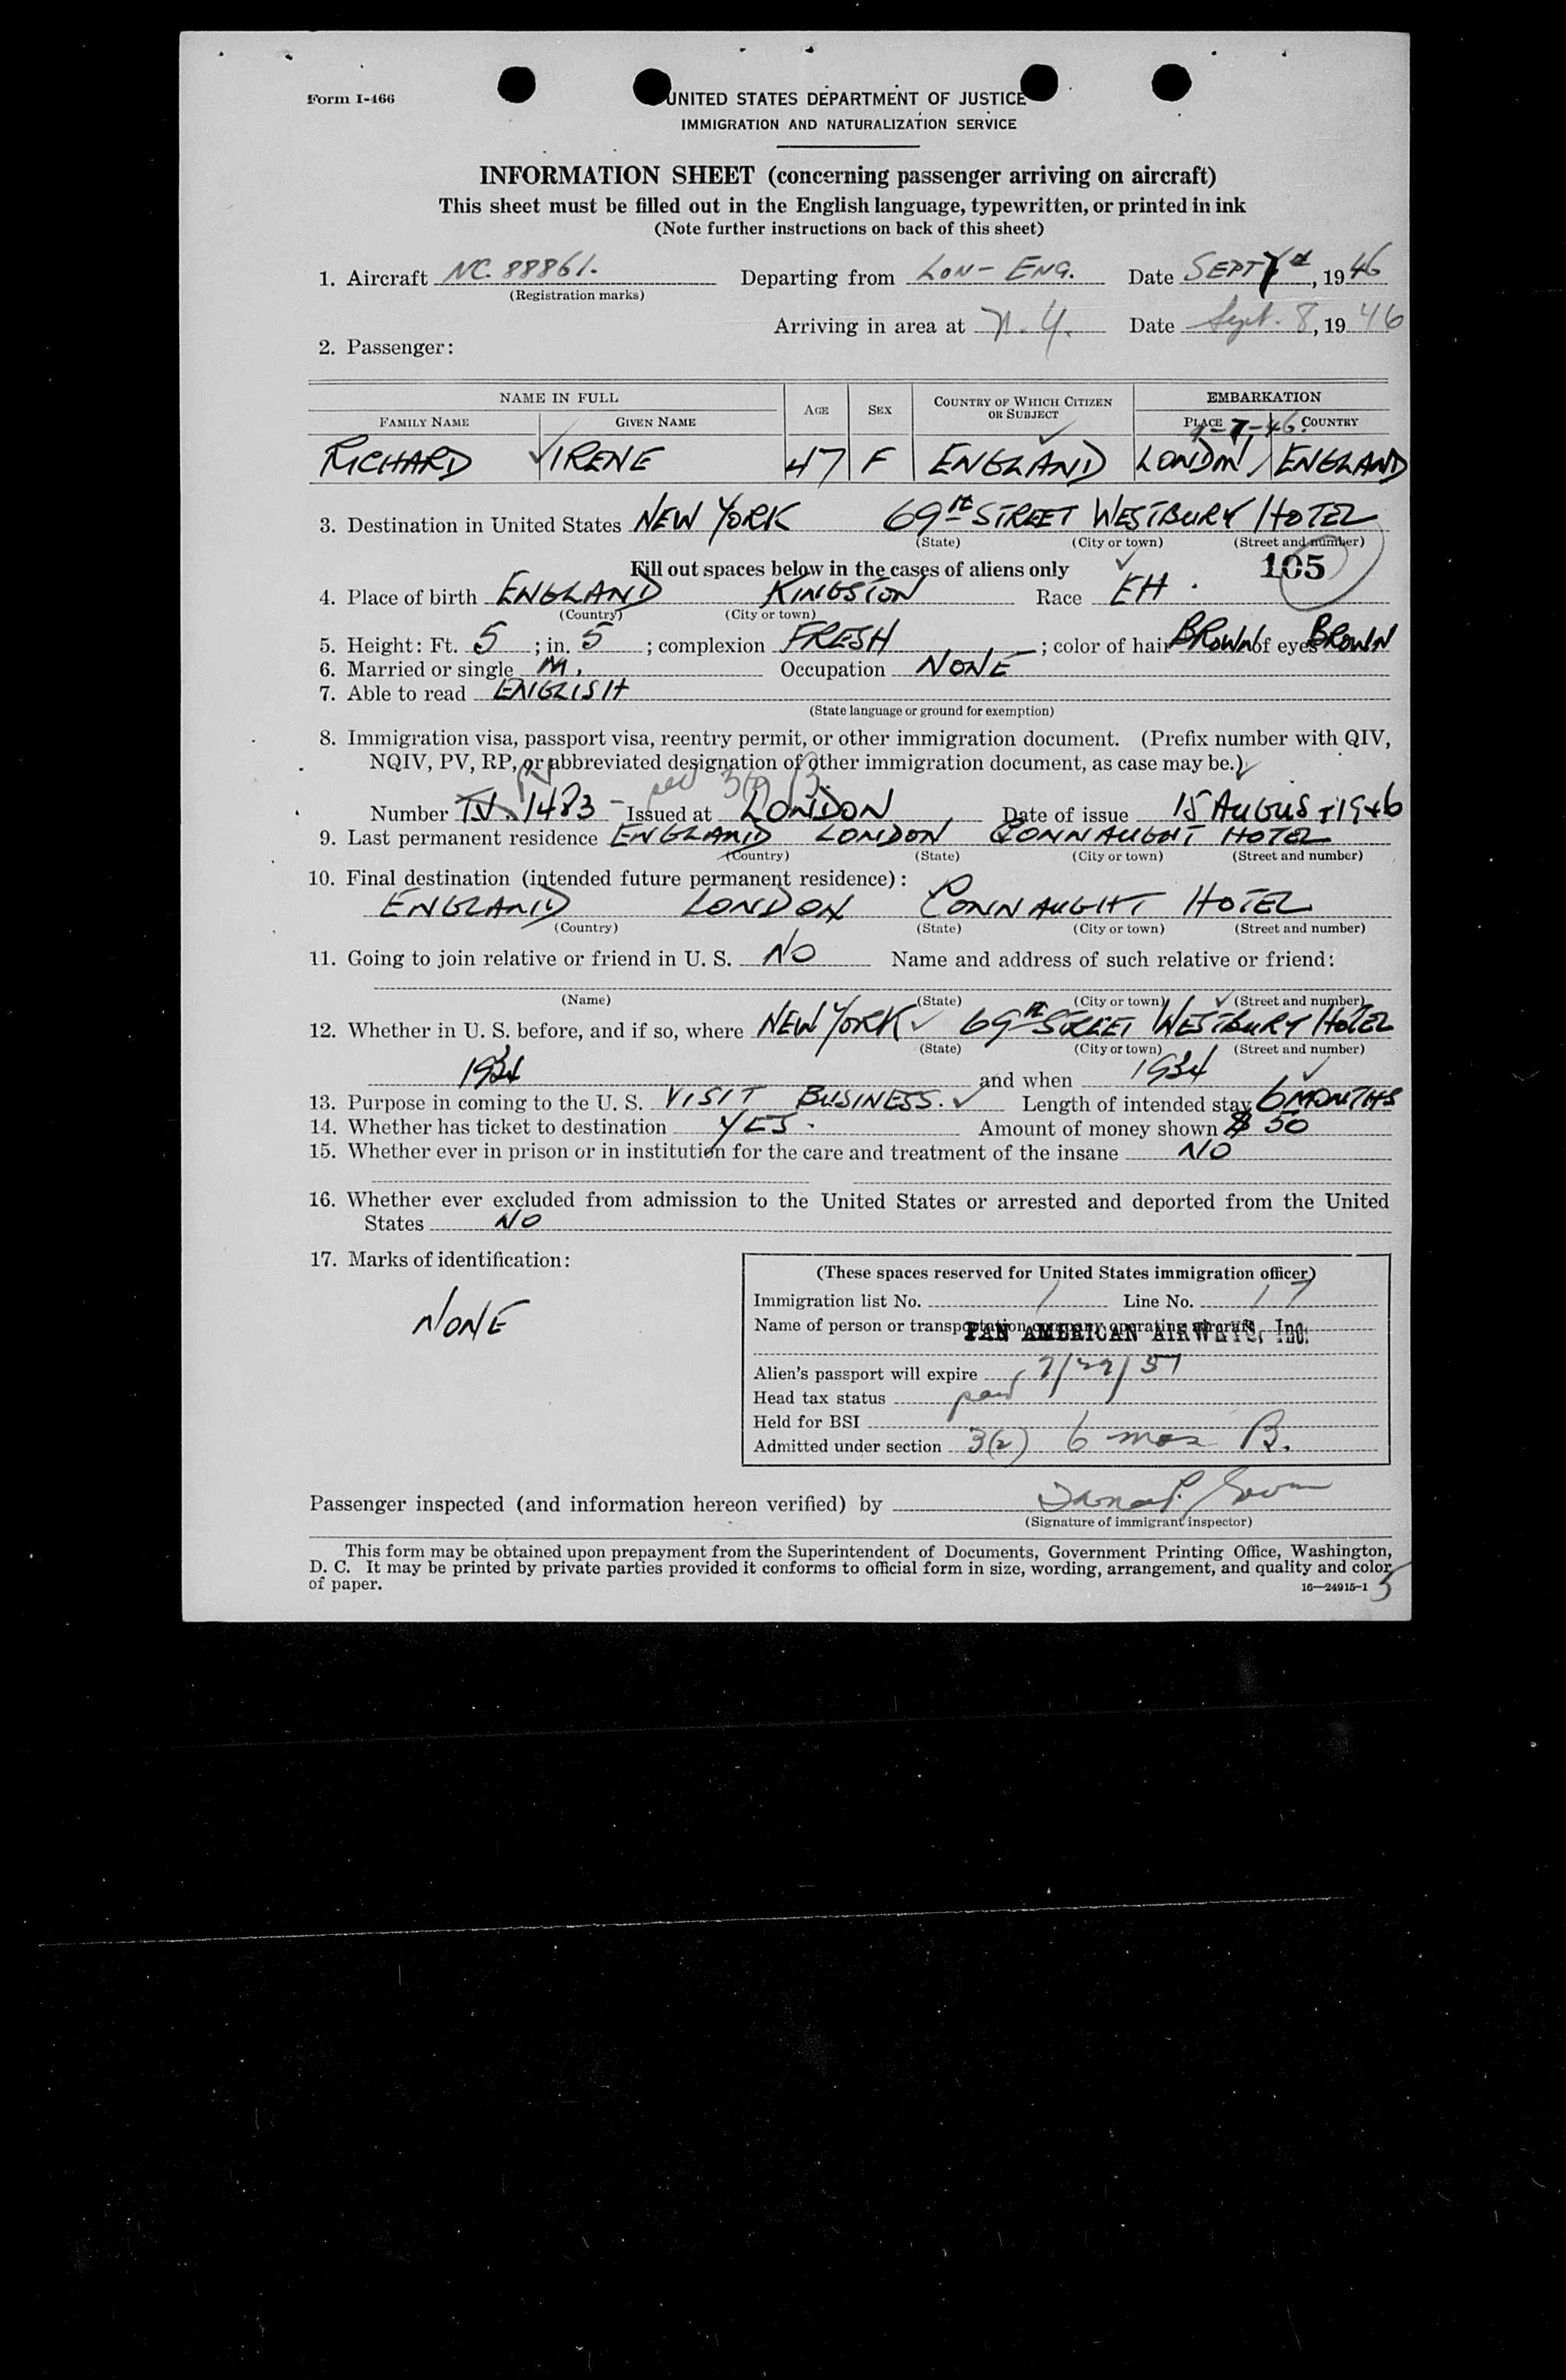 Form I-466
UNITED STATES DEPARTMENT OF JUSTICE
IMMIGRATION AND NATURALIZATION SERVICE
INFORMATION SHEET (concerning passenger arriving on aircraft)
This sheet must be filled out in the English language, typewritten, or printed in ink
(Note further instructions on back of this sheet)
1. Aircraft NC 88861. Departing from LON-ENG. Date SEPT, 1946
(Registration marks)
Arriving in area at N.Y. Date Sept. 8, 1946
2. Passenger:
NAME IN FULL AGE SEX COUNTRY OF WHICH CITIZEN OR SUBJECT EMBARKATION
FAMILY NAME GIVEN NAME PLACE COUNTRY
RICHARD IRENE 47 F ENGLAND LONDON ENGLAND
3. Destination in United States NEW YORK 69th STREET WESTBURY HOTEL
(State) (City or town) (Street and number)
Fill out spaces below in the cases of aliens only 105
4. Place of birth ENGLAND KINGSTON Race EH.
(Country) (City or town)
5. Height: Ft. 5; in. 5; complexion FRESH; color of hair BROWN of eyes BROWN
6. Married or single M. Occupation NONE
7. Able to read ENGLISH
(State language or ground for exemption)
8. Immigration visa, passport visa, reentry permit, or other immigration document. (Prefix number with QIV,
NQIV, PV, RP, or abbreviated designation of other immigration document, as case may be.)
PV 3(2) B.
Number 1483 Issued at LONDON Date of issue 15 AUGUST 1946
9. Last permanent residence ENGLAND LONDON CONNAUGHT HOTEL
(Country) (State) (City or town) (Street and number)
10. Final destination (intended future permanent residence):
ENGLAND LONDON CONNAUGHT HOTEL
(Country) (State) (City or town) (Street and number)
11. Going to join relative or friend in U. S. NO Name and address of such relative or friend:
(Name) (State) (City or town) (Street and number)
12. Whether in U. S. before, and if so, where NEW YORK 69th STREET WESTBURY HOTEL
(State) (City or town) (Street and number)
1934 and when 1934
13. Purpose in coming to the U. S. VISIT BUSINESS. Length of intended stay 6 MONTHS
14. Whether has ticket to destination YES. Amount of money shown $ 50
15. Whether ever in prison or in institution for the care and treatment of the insane NO
16. Whether ever excluded from admission to the United States or arrested and deported from the United
States NO
17. Marks of identification:
NONE
(These spaces reserved for United States immigration officer)
Immigration list No. 1 Line No. 17
Name of person or transportation company operating aircraft
PAN AMERICAN AIRWAYS, Inc.
Alien's passport will expire 7/29/51
Head tax status paid
Held for BSI
Admitted under section 3(2) 6 mos B.
Passenger inspected (and information hereon verified) by
(Signature of immigrant inspector)
This form may be obtained upon prepayment from the Superintendent of Documents, Government Printing Office, Washington,
D. C. It may be printed by private parties provided it conforms to official form in size, wording, arrangement, and quality and color
of paper.
16—24915-1
5